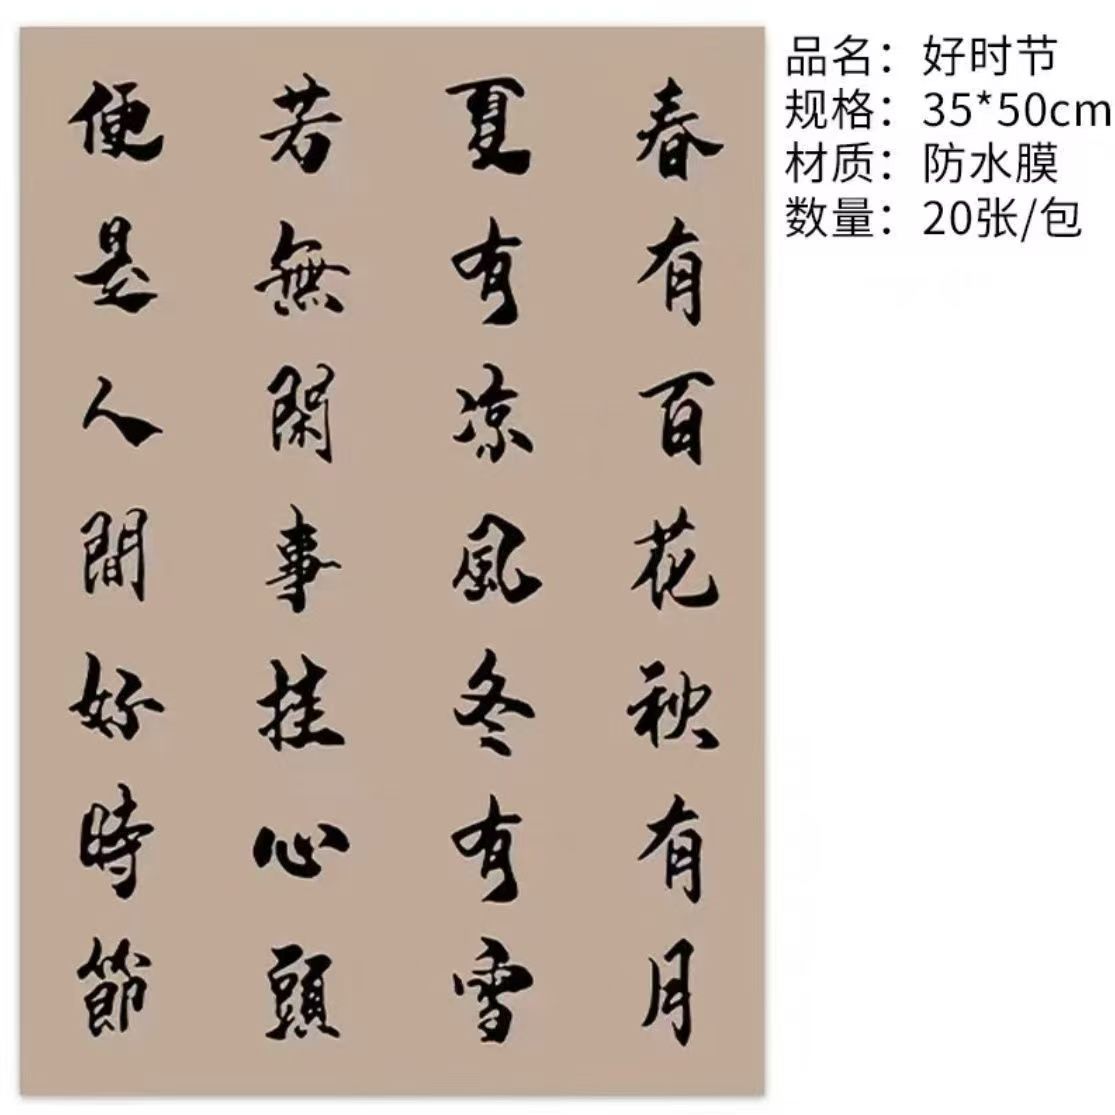 春有百花秋有月
夏有凉風冬有雪
若無閑事挂心頭
便是人間好時節
品名：好时节
规格：35*50cm
材质：防水膜
数量：20张/包